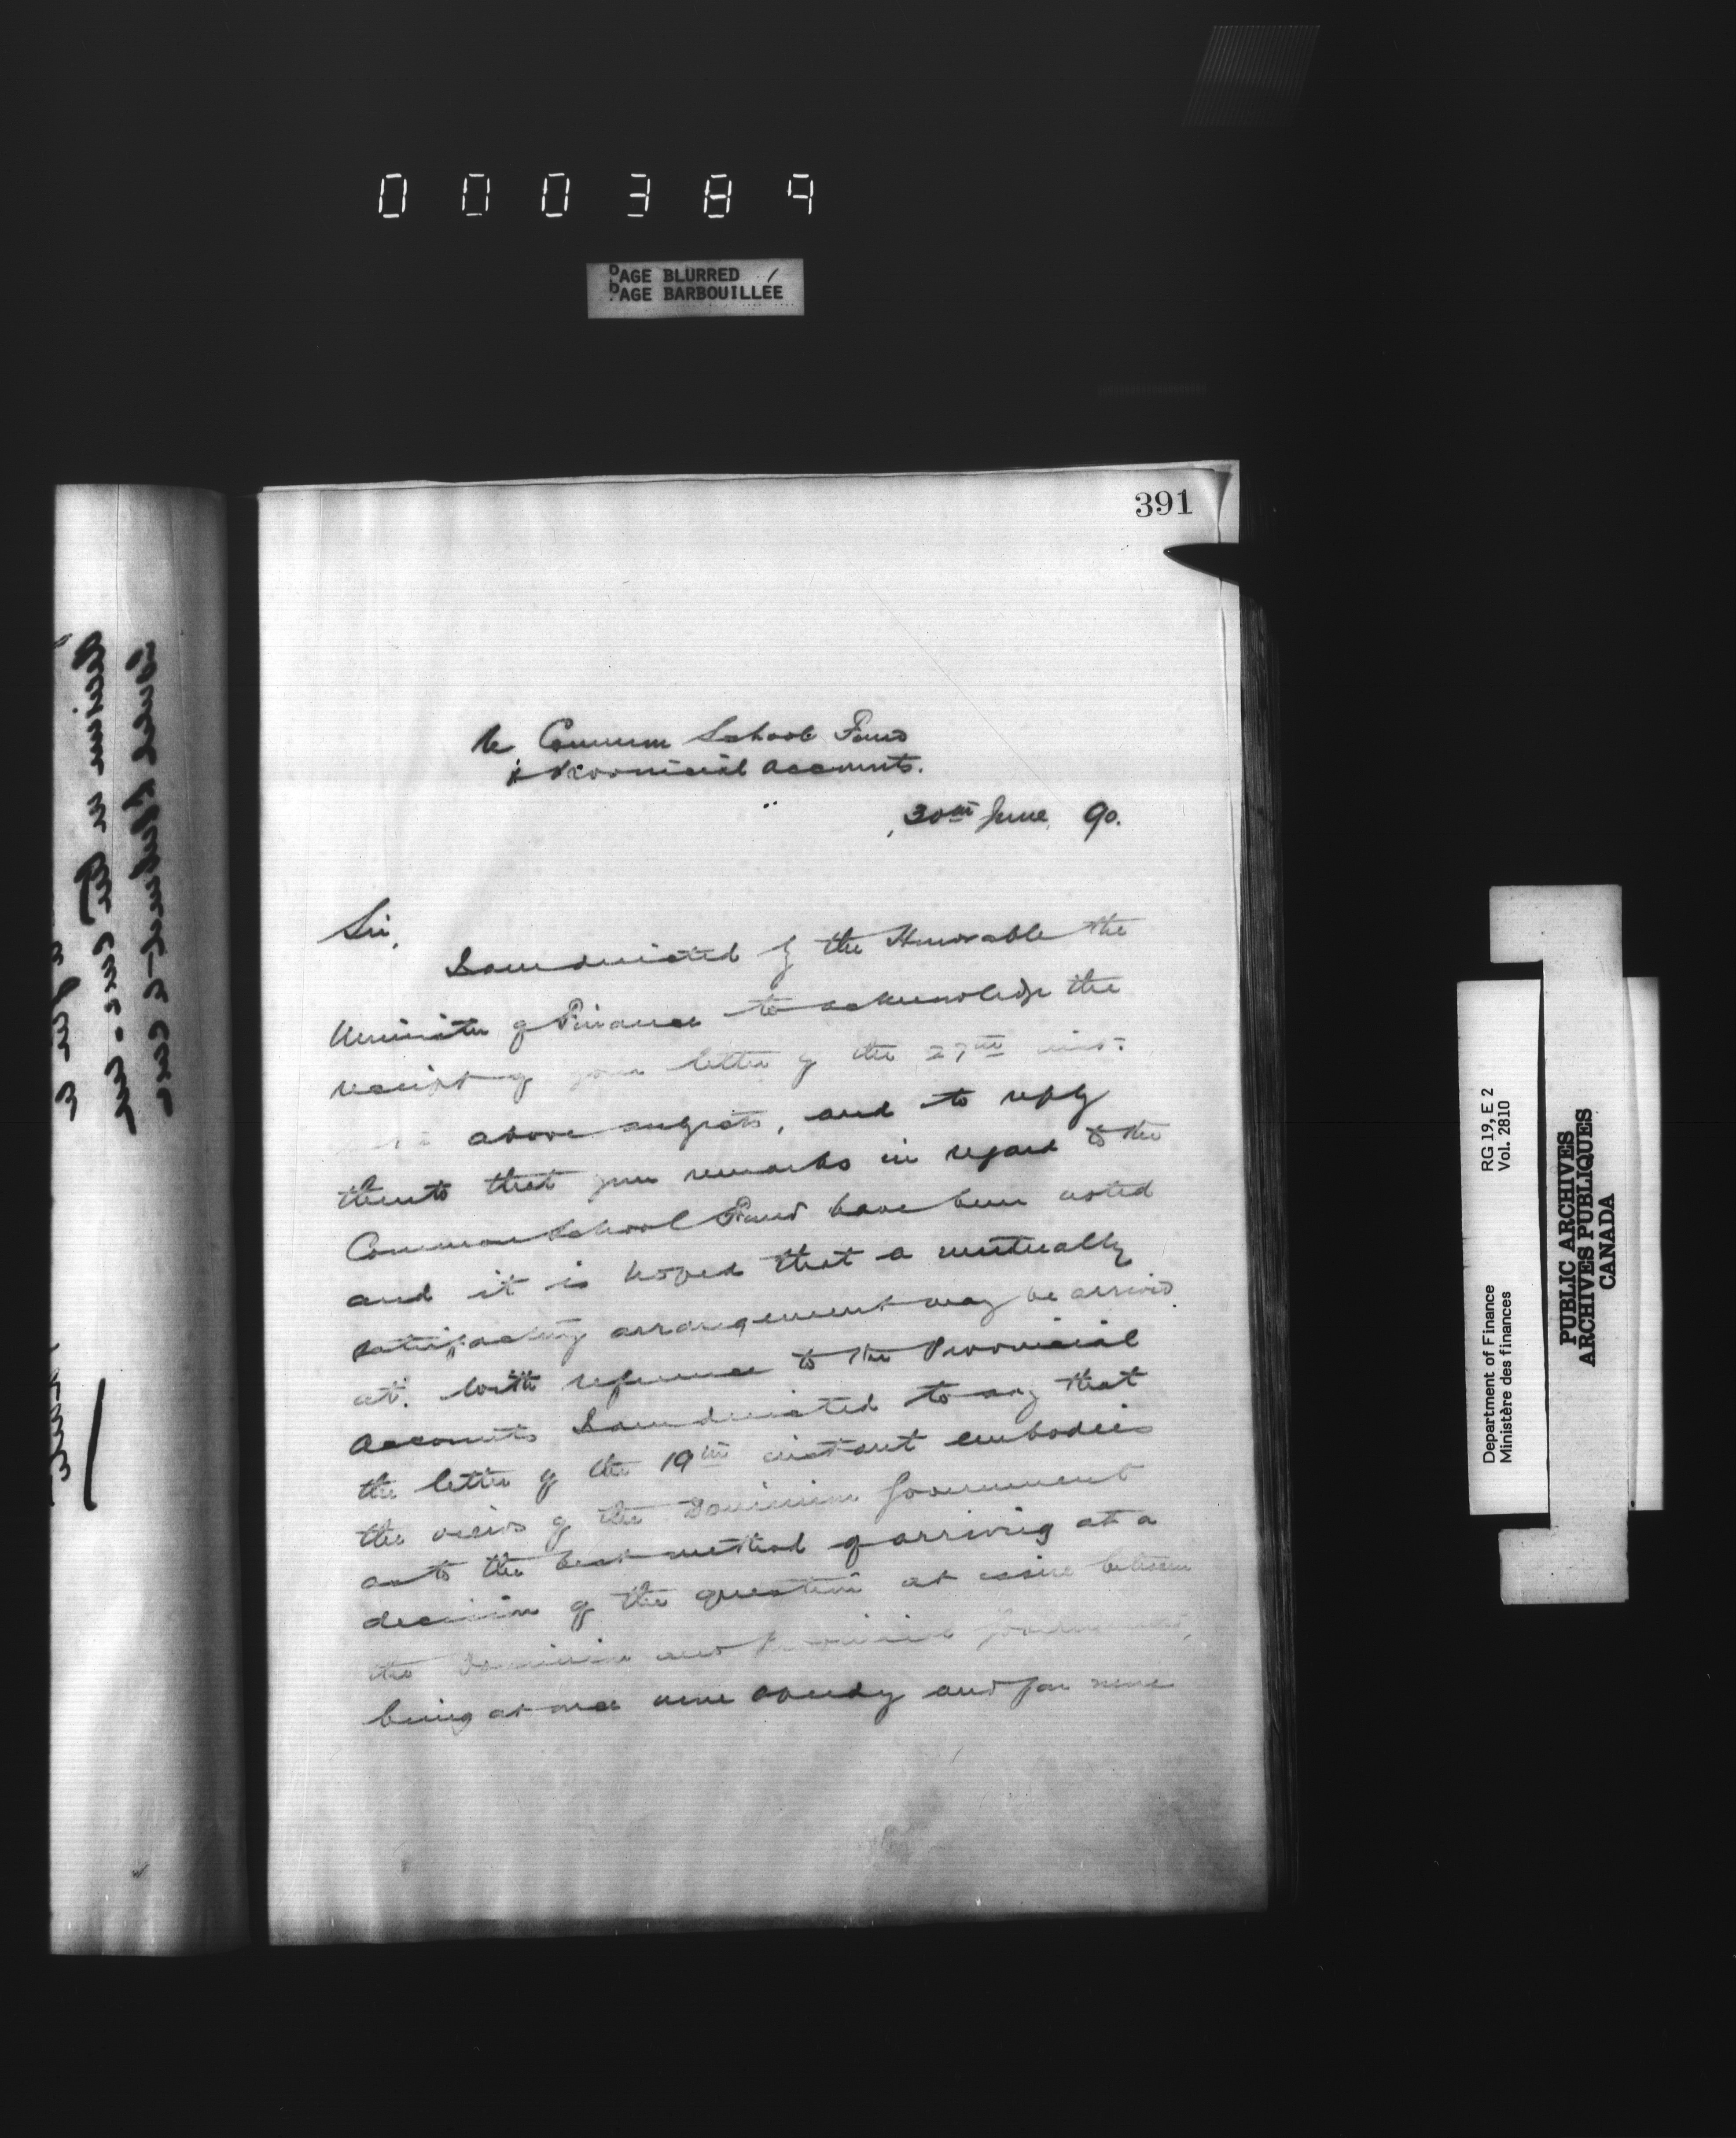 000389
PAGE BLURRED
PAGE BARBOUILLÉE
391
Re Common School Fund
& Provincial Accounts.
30th June, 90.
Sir,
I am directed by the Honorable the
Minister of Finance to acknowledge the
receipt of your letter of the 27th inst:
above subjects, and to reply
thereto that your remarks in regard to the
Common School Fund have been noted
and it is hoped that a mutually
satisfactory arrangement may be arrived
at. With reference to the Provincial
Accounts I am directed to say that
the letter of the 19th instant embodies
the views of the Dominion Government
as to the best method of arriving at a
decision of the question at issue between
the Dominion and Provincial Governments,
being at once more speedy and far more
Department of Finance
Ministère des finances
RG 19, E 2
Vol. 2810
PUBLIC ARCHIVES
ARCHIVES PUBLIQUES
CANADA